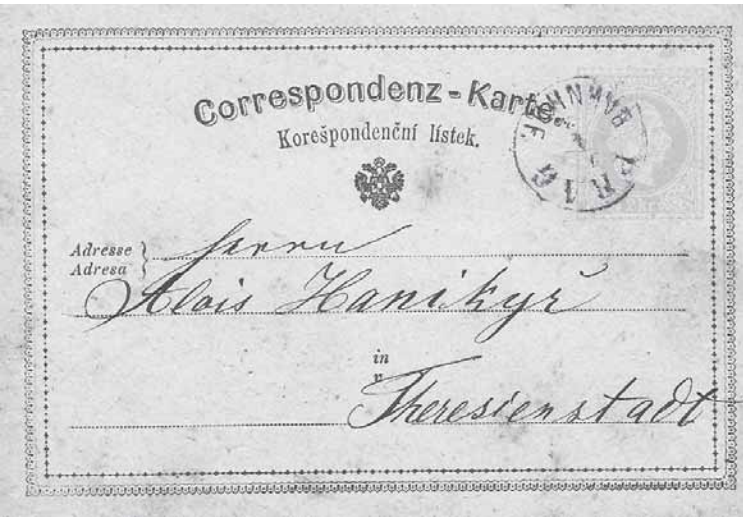 Correspondenz-Karte.
Korešpondenční lístek.
PRAG BAHNHOF.
Adresse } Herrn
Adresa }
Alois Hanikyř
in
v
Theresienstadt